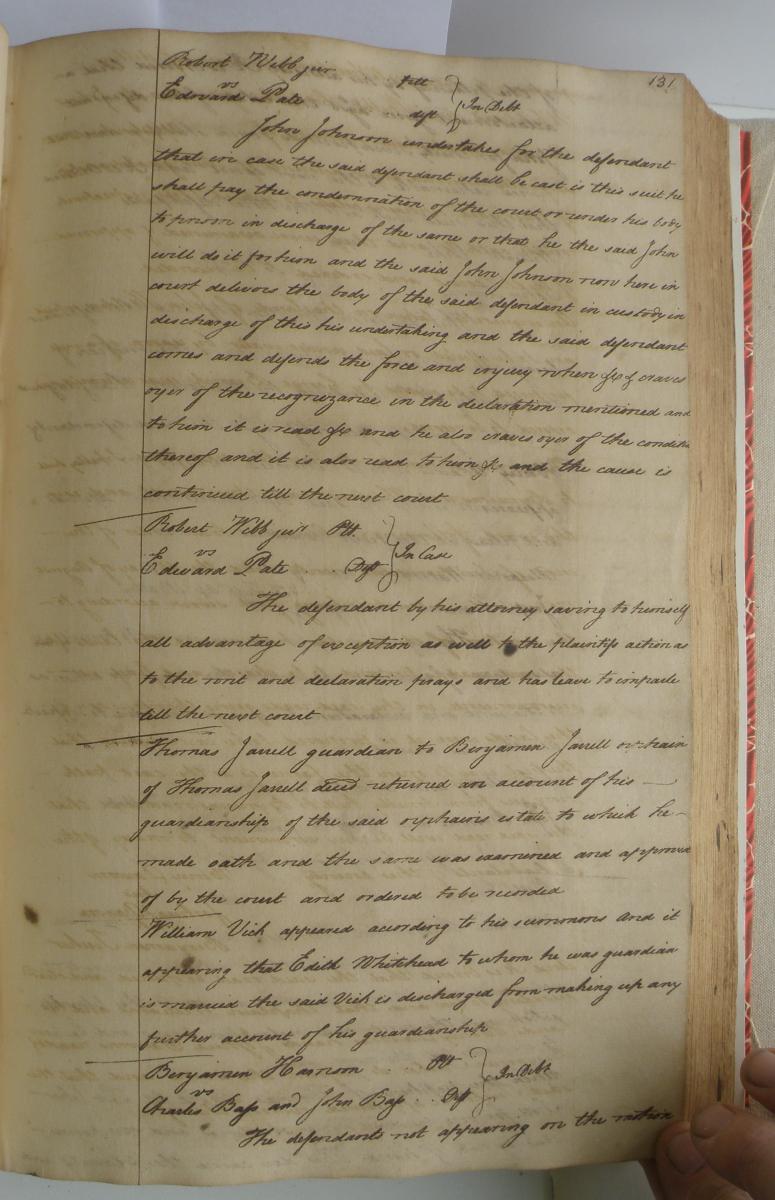 131
Robert Webb junr Pltt
vs } In Debt
Edward Pate deft
John Johnson undertakes for the defendant
that in case the said defendant shall be cast is this suit he
shall pay the condemnation of the court or under his body
to prison in discharge of the same or that he the said John
will do it for him and the said John Johnson now here in
court delivers the body of the said defendant in custody in
discharge of this his undertaking and the said defendant
comes and defends the force and injury when &c & craves
oyer of the recognizance in the declaration mentioned and
to him it is read &c and he also craves oyer of the condition
thereof and it is also read to him &c and the cause is
continued till the next court
Robert Webb junr Plt.
vs } In Case
Edward Pate . . Deft
The defendant by his attorney saving to himself
all advantage of exception as well to the plaintifs action as
to the writ and declaration prays and has leave to imparle
till the next court
Thomas Jarrell guardian to Benjamen Jarrell orphain
of Thomas Jarrell deced returned an account of his
guardianship of the said orphains estate to which he
made oath and the same was examined and approved
of by the court and ordered to be recorded
William Vick appeared according to his summons and it
appearing that Edith Whitehead to whom he was guardian
is married the said Vick is discharged from making up any
further account of his guardianship
Benjamen Harrison . Plt
vs } In Debt
Charles Bass and John Bass . . Deft
The defendants not appearing on the